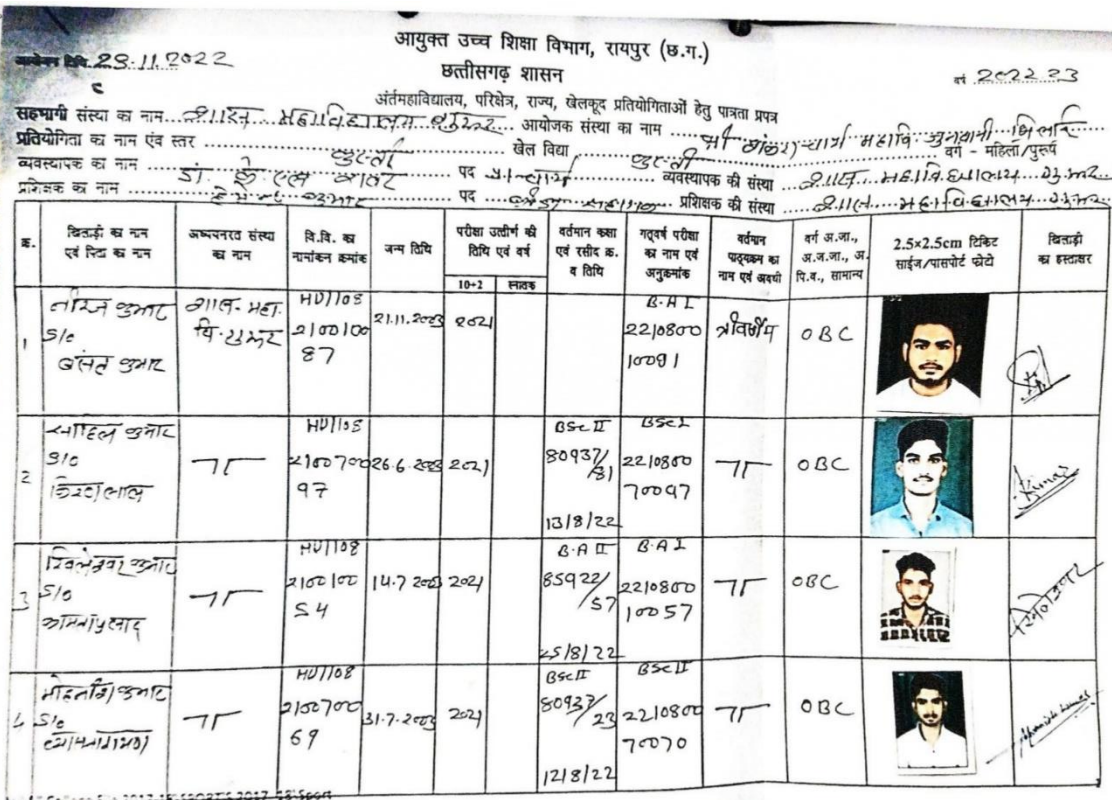 आयुक्त उच्च शिक्षा विभाग, रायपुर (छ.ग.)
छत्तीसगढ़ शासन
29.11.2022
वर्ष 2022 23
अंर्तमहाविद्यालय, परिक्षेत्र, राज्य, खेलकूद प्रतियोगिताओं हेतु पात्रता प्रपत्र
सहभागी संस्था का नाम शास. महाविद्यालय गुरुर आयोजक संस्था का नाम श्री शंकराचार्य महावि. जुनवानी भिलाई
प्रतियोगिता का नाम एंव स्तर कुश्ती खेल विद्या कुश्ती वर्ग - महिला/पुरूष
व्यवस्थापक का नाम डॉ. के. एल. पद प्राचार्य व्यवस्थापक की संस्था शास. महाविद्यालय गुरुर
प्रशिक्षक का नाम कुमार पद क्रीड़ा सहायक प्रशिक्षक की संस्था शास. महाविद्यालय गुरुर
क्र. खिलाड़ी का नाम एवं पिता का नाम अध्ययनरत संस्था का नाम वि.वि. का नामांकन क्रमांक जन्म तिथि परीक्षा उत्तीर्ण की तिथि एवं वर्ष वर्तमान कक्षा एवं रसीद क्र. व तिथि गतवर्ष परीक्षा का नाम एवं अनुक्रमांक वर्तमान पाठ्यक्रम का नाम एवं अवधी वर्ग अ.जा., अ.ज.जा., अ.पि.व., सामान्य 2.5x2.5cm टिकिट साईज/पासपोर्ट फोटो खिलाड़ी का हस्ताक्षर
10+2 स्नातक
1 नीरज कुमार S/o बसंत कुमार शास. महा. वि. गुरुर HU1108 2100100 87 21.11.2003 2021 B.A I 2210800 10091 त्रीवर्षीय OBC
2 साहिल कुमार S/o HU1108 2100700 97 26.6.2003 2021 BSc II 80937/31 13/8/22 BSc I 2210800 70097 OBC Kumar
3 खिलेश्वर कुमार S/o कामताप्रसाद HU1108 2100100 54 14.7 2003 2021 B.A II 85922/57 25/8/22 B.A I 2210800 10057 OBC
4 कुमार S/o HU1108 2100700 69 31.7.2003 2021 BSc II 80937/23 12/8/22 BSc II 2210800 70070 OBC